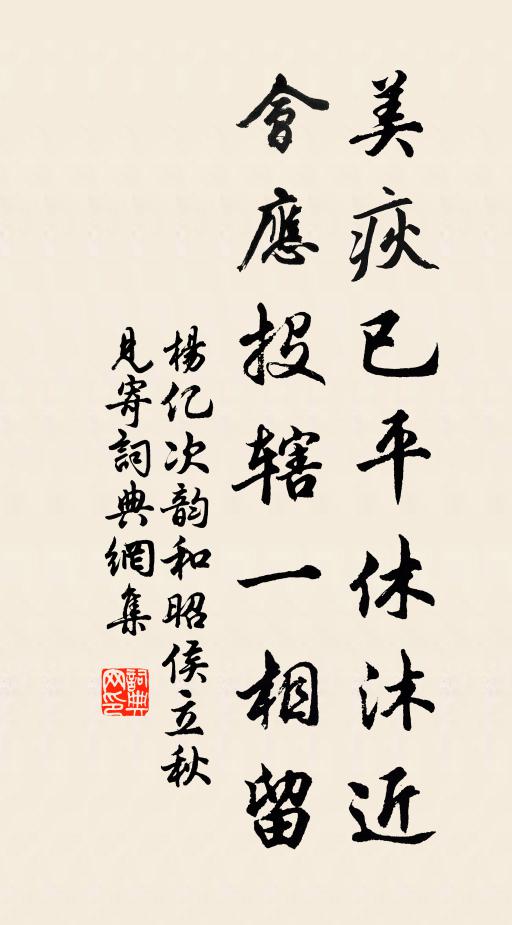 美疢已平休沐近
會應投辖一相留
楊亿次韵和昭侯立秋
見寄詞典網集
詞典
网印